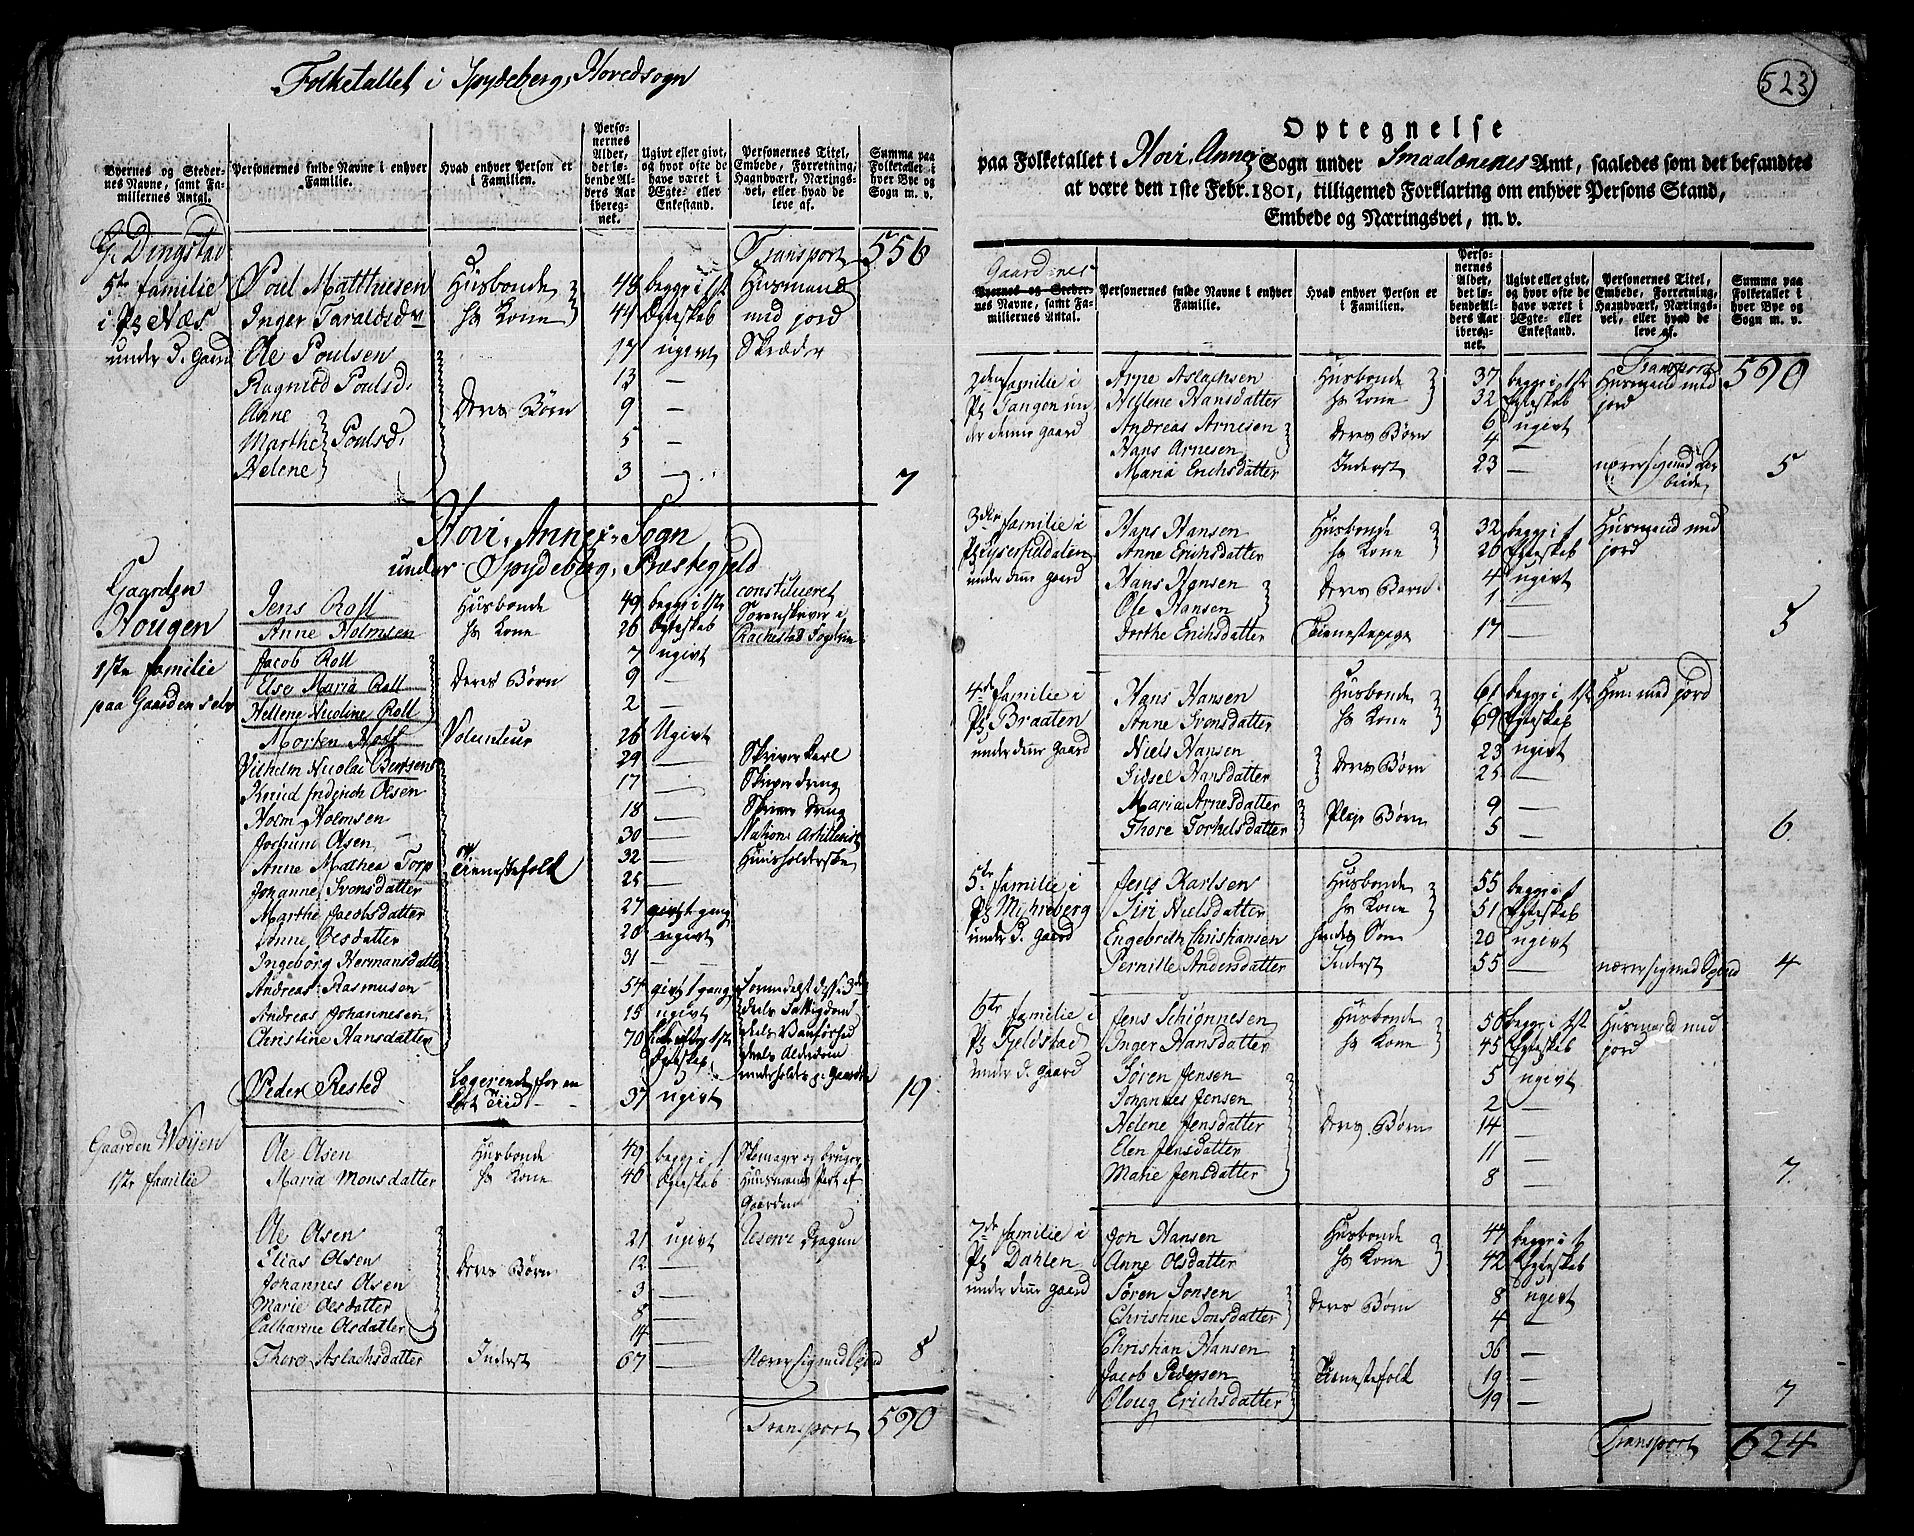 Folketallet i Spydeberg, Hovedsogn
Byernes og Stedernes Navne, samt Familiernes Antal.
Personernes fulde Navne i enhver Familie.
Hvad enhver Person er i Familien.
Personernes Alder, det løbende Alders Aar iberegnet.
Ugivt eller givt, og hvor ofte de have været i Ægte- eller Enkestand.
Personernes Titel, Embede, Forretning, Haandværk, Næringsvei, eller hvad de leve af.
Summa paa Folketallet i hver Bye og Sogn m. v.
G. Dingstad Transport 556
5te familie Poul Matthiesen Husbonde 48 begge i 1st Husmand
i Pl Næs Inger Taraldsd hs Kone 44 Ægteskab med jord
under d. Gaard Ole Poulsen 17 ugivt Skræder
Ragnild Poulsd. 13 —
Anne Deres Børn 9 —
Marthe Poulsd. 5 —
Helene 3 — 7
Hovi, Annex, Sogn
under Spydeberg, Præstegjeld
Gaarden Jens Roll Husbonde 49 begge i 1ste constitueret
Hougen Anne Holmsen hs Kone 26 Ægteskab Sorenskriver i
1ste familie Jacob Roll 7 ugivt
paa Gaarden selv Else Maria Roll Deres Børn 9 —
Hellene Nicoline Roll 2 —
Morten Volunteur 26 Ugivt
Vilhelm Nicolai 29 — Skriver Karl
Knud Fridrich Olsen 17 — Skriver dreng
Holm Holmsen 18 — Skriver Dreng
Jochum Olsen 30 — Nation:
Anne Mathea Torp Tienestefolk 32 — Huusholderske
Johanne Svensdatter 25 —
Marthe Jacobsdatter 27 givt 1 gang
Anne Olsdatter 20 ugivt
Ingeborg Hermansdatter 31 —
Andreas Rasmusen 54 givt 1 gang
Andreas Johannesen 15 ugivt
Christine Hansdatter 70
Peder Rested Logerende for en kort Tiid 37 ugivt 19
Gaarden Woijen Ole Olsen Husbonde 49 begge i 1 Skomager og bruger
1ste familie Maria Monsdatter hs Kone 40 Ægteskab Part af
Gaarden
Ole Olsen 21 ugivt Dragun
Elias Olsen Deres Børn 12 —
Johannes Olsen 3 —
Marie Olsdatter 8 —
Catharine Olsdatter 14 —
Thore Aslachsdatter Inderst 67 — Nærer sig med Spind 8
Transport 590
523
Optegnelse
paa Folketallet i Hovi, Annex Sogn under Smaalenenes Amt, saaledes som det befandtes
at være den 1ste Febr. 1801, tilligemed Forklaring om enhver Persons Stand,
Embede og Næringsvei, m. v.
Gaardenes
Byernes og Stedernes Navne, samt Familiernes Antal.
Personernes fulde Navne i enhver Familie.
Hvad enhver Person er i Familien.
Personernes Alder, det løbende Alders Aar iberegnet.
Ugivt eller givt, og hvor ofte de have været i Ægte- eller Enkestand.
Personernes Titel, Embede, Forretning, Haandværk, Næringsvei, eller hvad de leve af.
Summa paa Folketallet i hver Bye og Sogn m. v.
Transport 590
2den familie i Arne Aslachsen Husbonde 37 begge i 1st Husmand med
Pl Tangen un- Hellene Hansdatter hs Kone 32 Ægteskab jord
der denne gaard Andreas Arnesen Deres Børn 6 ugivt
Hans Arnesen 4 —
Maria Erichsdatter Inderst 23 — nærer sig med Ar-
beide 5
3die familie i Hans Hansen Husbonde 32 begge i 1 Husmand med
Anne Erichsdatter hs Kone 26 Ægteskab jord
under denne gaard Hans Hansen Deres Børn 4 ugivt
Ole Hansen 1 —
Dorthe Erichsdatter Tienestepige 17 — 5
4de familie i Hans Hansen Husbonde 61 begge i 1st Hm: med jord
Pl Braaten Anne Svensdatter hs Kone 69 Ægteskab
under denne gaard Niels Hansen Deres Børn 23 ugivt
Sidsel Hansdatter 25 —
Maria Arnesdatter Pleje Børn 9 —
Thore Torkelsdatter 5 — 6
5te familie i Jens Karlsen Husbonde 55 begge i 1
Pl Myhreberg Siri Nielsdatter hs Kone 51 Ægteskab
under d. gaard Engebreth Christiansen hendes Søn 20 ugivt
Pernille Andersdatter Inderst 55 — nærer sig med Spind 4
6te familie i Jens Schiønnesen Husbonde 50 begge i 1st Husmand med
Pl Fjeldstad Inger Hansdatter hs Kone 45 Ægteskab jord
under d. gaard Søren Jensen 5 ugivt
Johannes Jensen 2 —
Helene Jensdatter Deres Børn 14 —
Elen Jensdatter 11 —
Marie Jensdatter 8 — 7
7de familie i Jon Hansen Husbonde 47 begge i 1
Pl Dahlen Anne Olsdatter hs Kone 42 Ægteskab
under denne gaard Søren Jonsen Deres Børn 8 ugivt
Christine Jonsdatter 4 —
Christian Hansen 36 —
Jacob Pedersen Tienestefolk 19 —
Oloug Erichsdatter 19 — 7
Transport 624